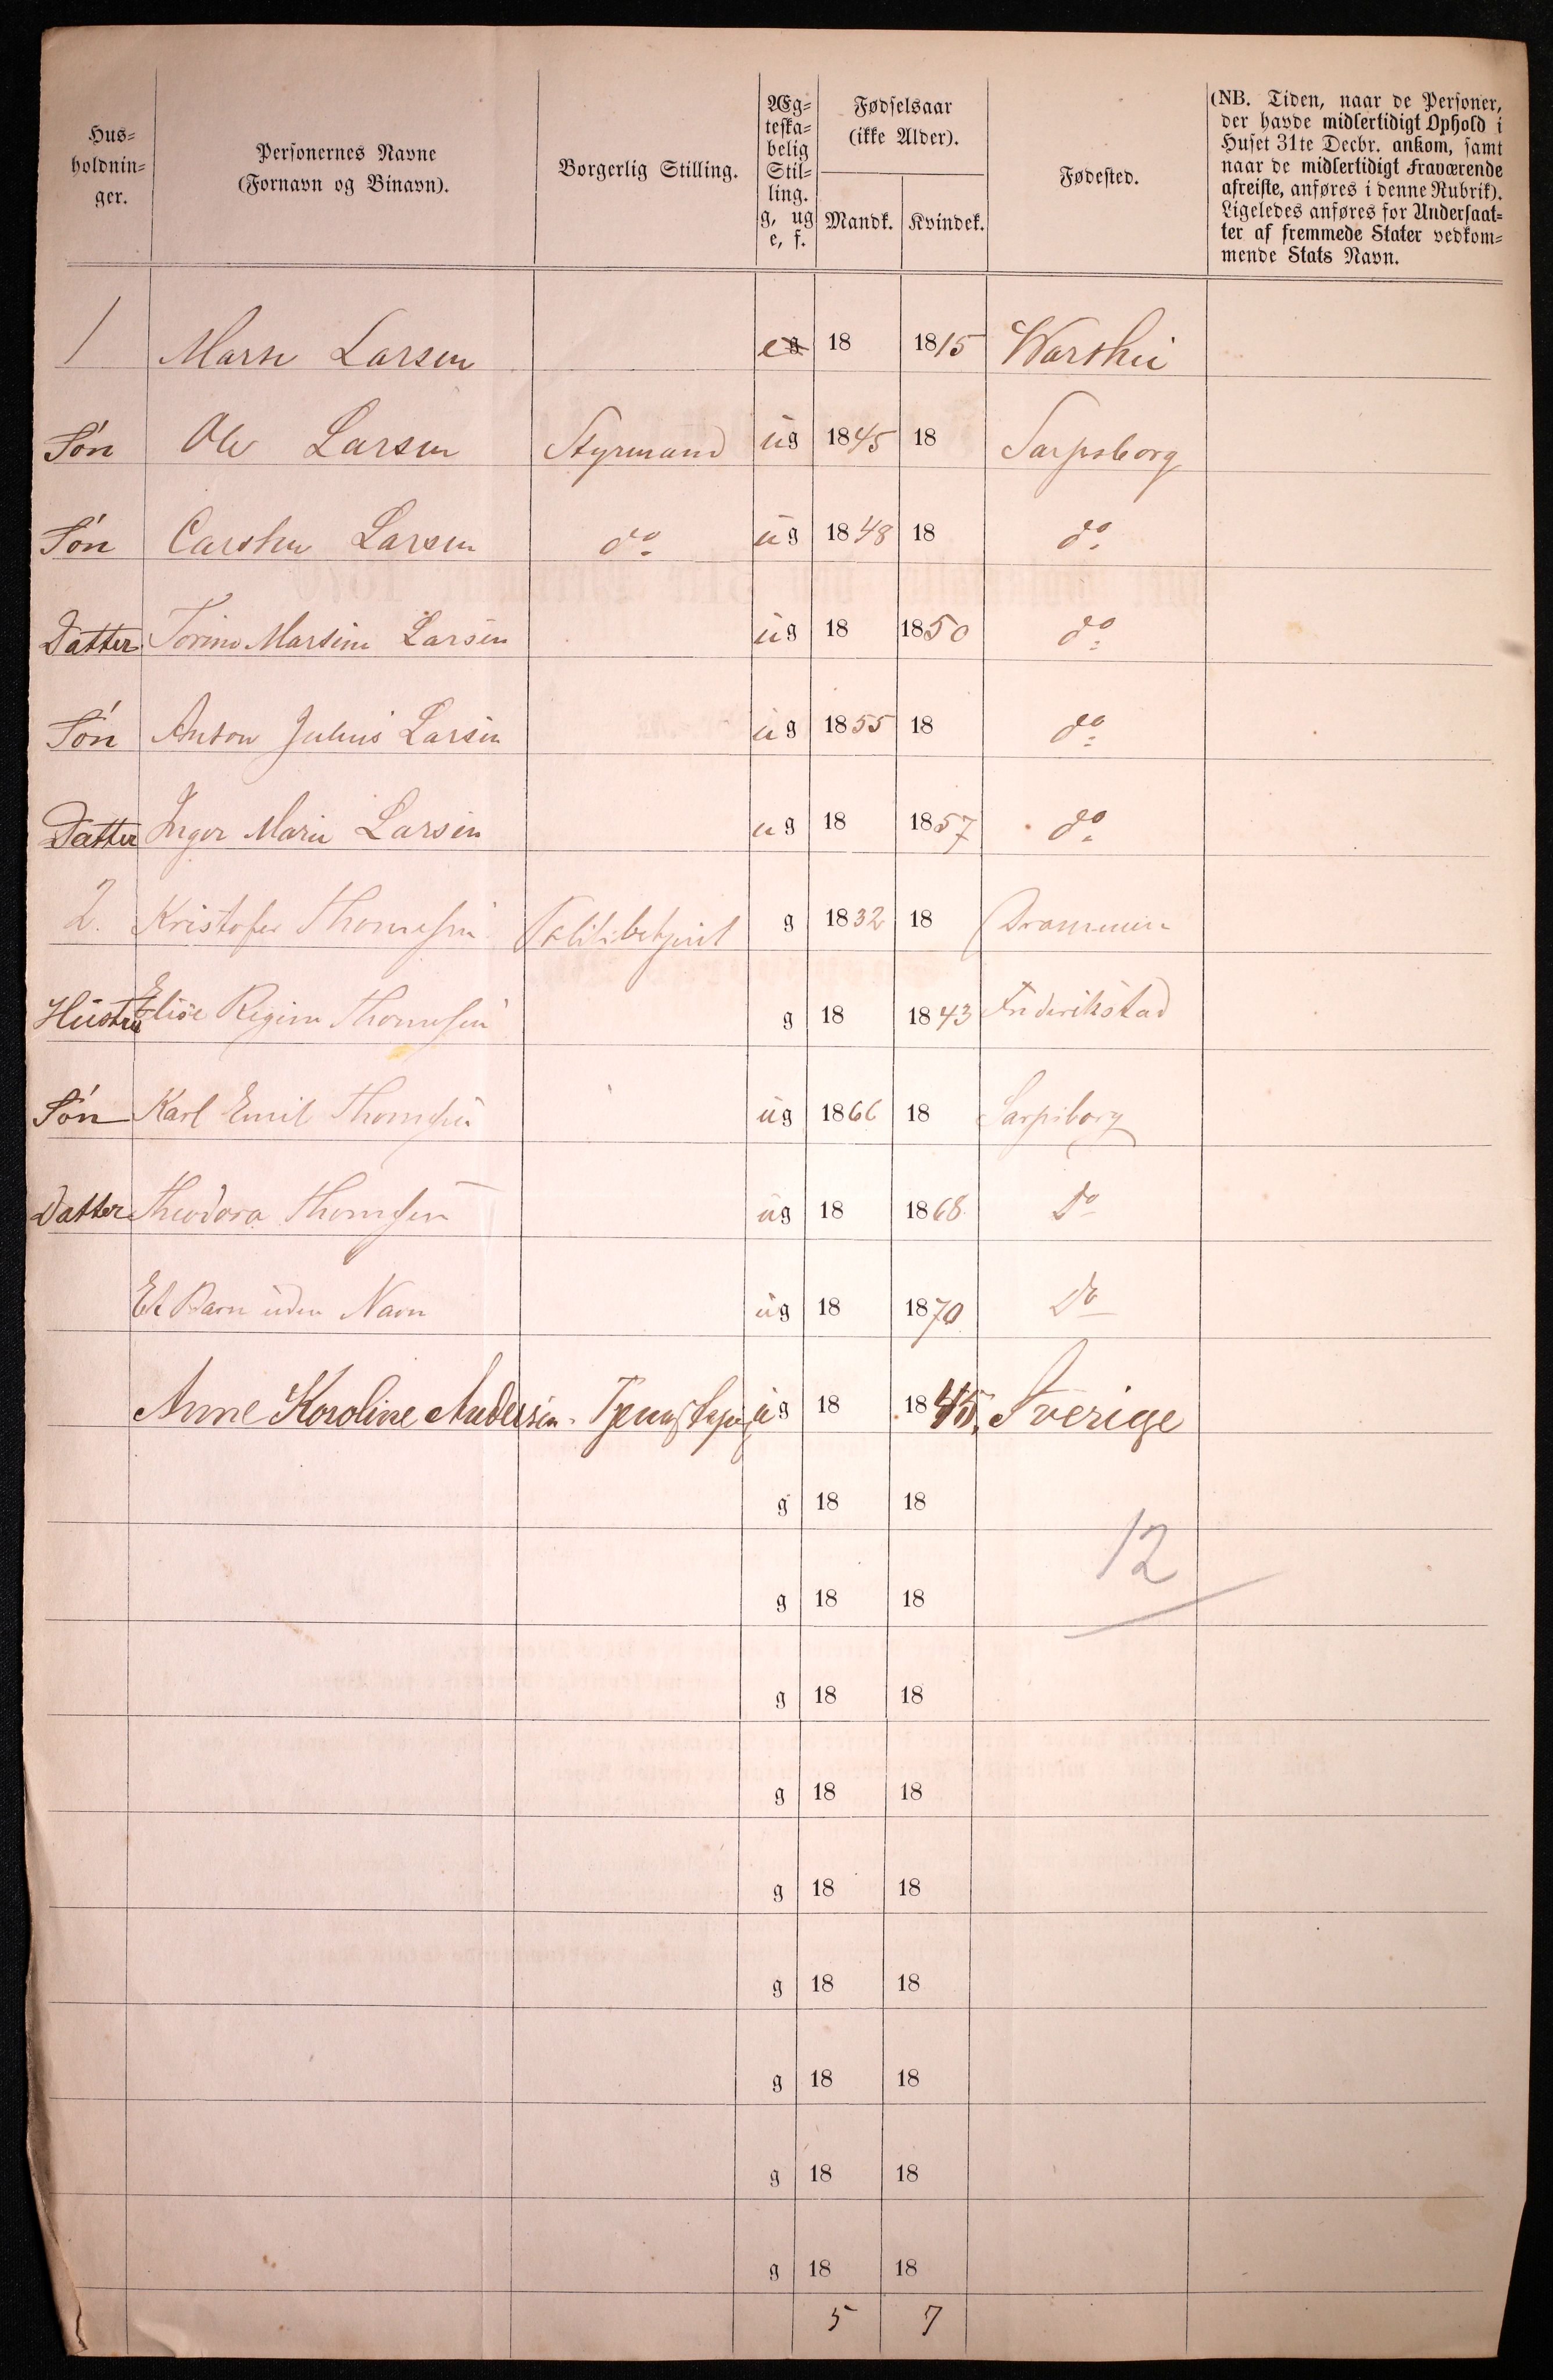 Hus-
holdnin-
ger.
Personernes Navne
(Fornavn og Binavn).
Borgerlig Stilling.
Æg-
teska-
belig
Stil-
ling.
g, ug
e, f.
Fødselsaar
(ikke Alder).
Mandk. Kvindek.
Fødested.
(NB. Tiden, naar de Personer,
der havde midlertidigt Ophold i
Huset 31te Decbr. ankom, samt
naar de midlertidigt Fraværende
afreiste, anføres i denne Rubrik).
Ligeledes anføres for Undersaat-
ter af fremmede Stater vedkom-
mende Stats Navn.
1 Larsen e g 18 1815
Søn Ole Larsen Styrmand ug 1845 18 Sarpsborg
Søn Carsten Larsen do ug 1848 18 do
Datter Larsen ug 18 1850 do
Søn Anton Julius Larsen ug 1855 18 do
Datter Inger Marie Larsen ug 18 1857 do
2. Kristofer Thomesen Politibetjent g 1832 18 Drammen
Hustru Elise Regine Thomesen g 18 1843 Frederikstad
Søn Karl Emil Thomesen ug 1866 18 Sarpsborg
Datter Theodora Thomesen ug 18 1868 Do
Et Barn uden Navn ug 18 1870 Do
Anne Karoline Andersen ug 18 1845. Sverige
g 18 18
12
g 18 18
g 18 18
g 18 18
g 18 18
g 18 18
g 18 18
g 18 18
g 18 18
5 7